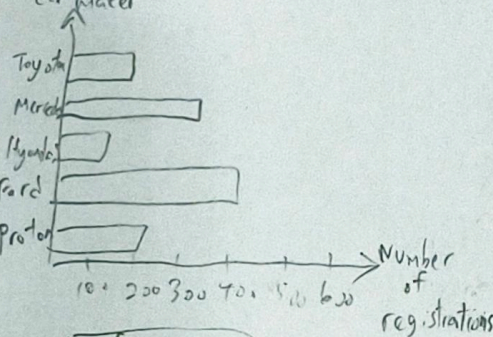 Maker
Toyota
Merced
Hyundai
Ford
Proton
100 200 300 400 500 600
Number
of
registrations